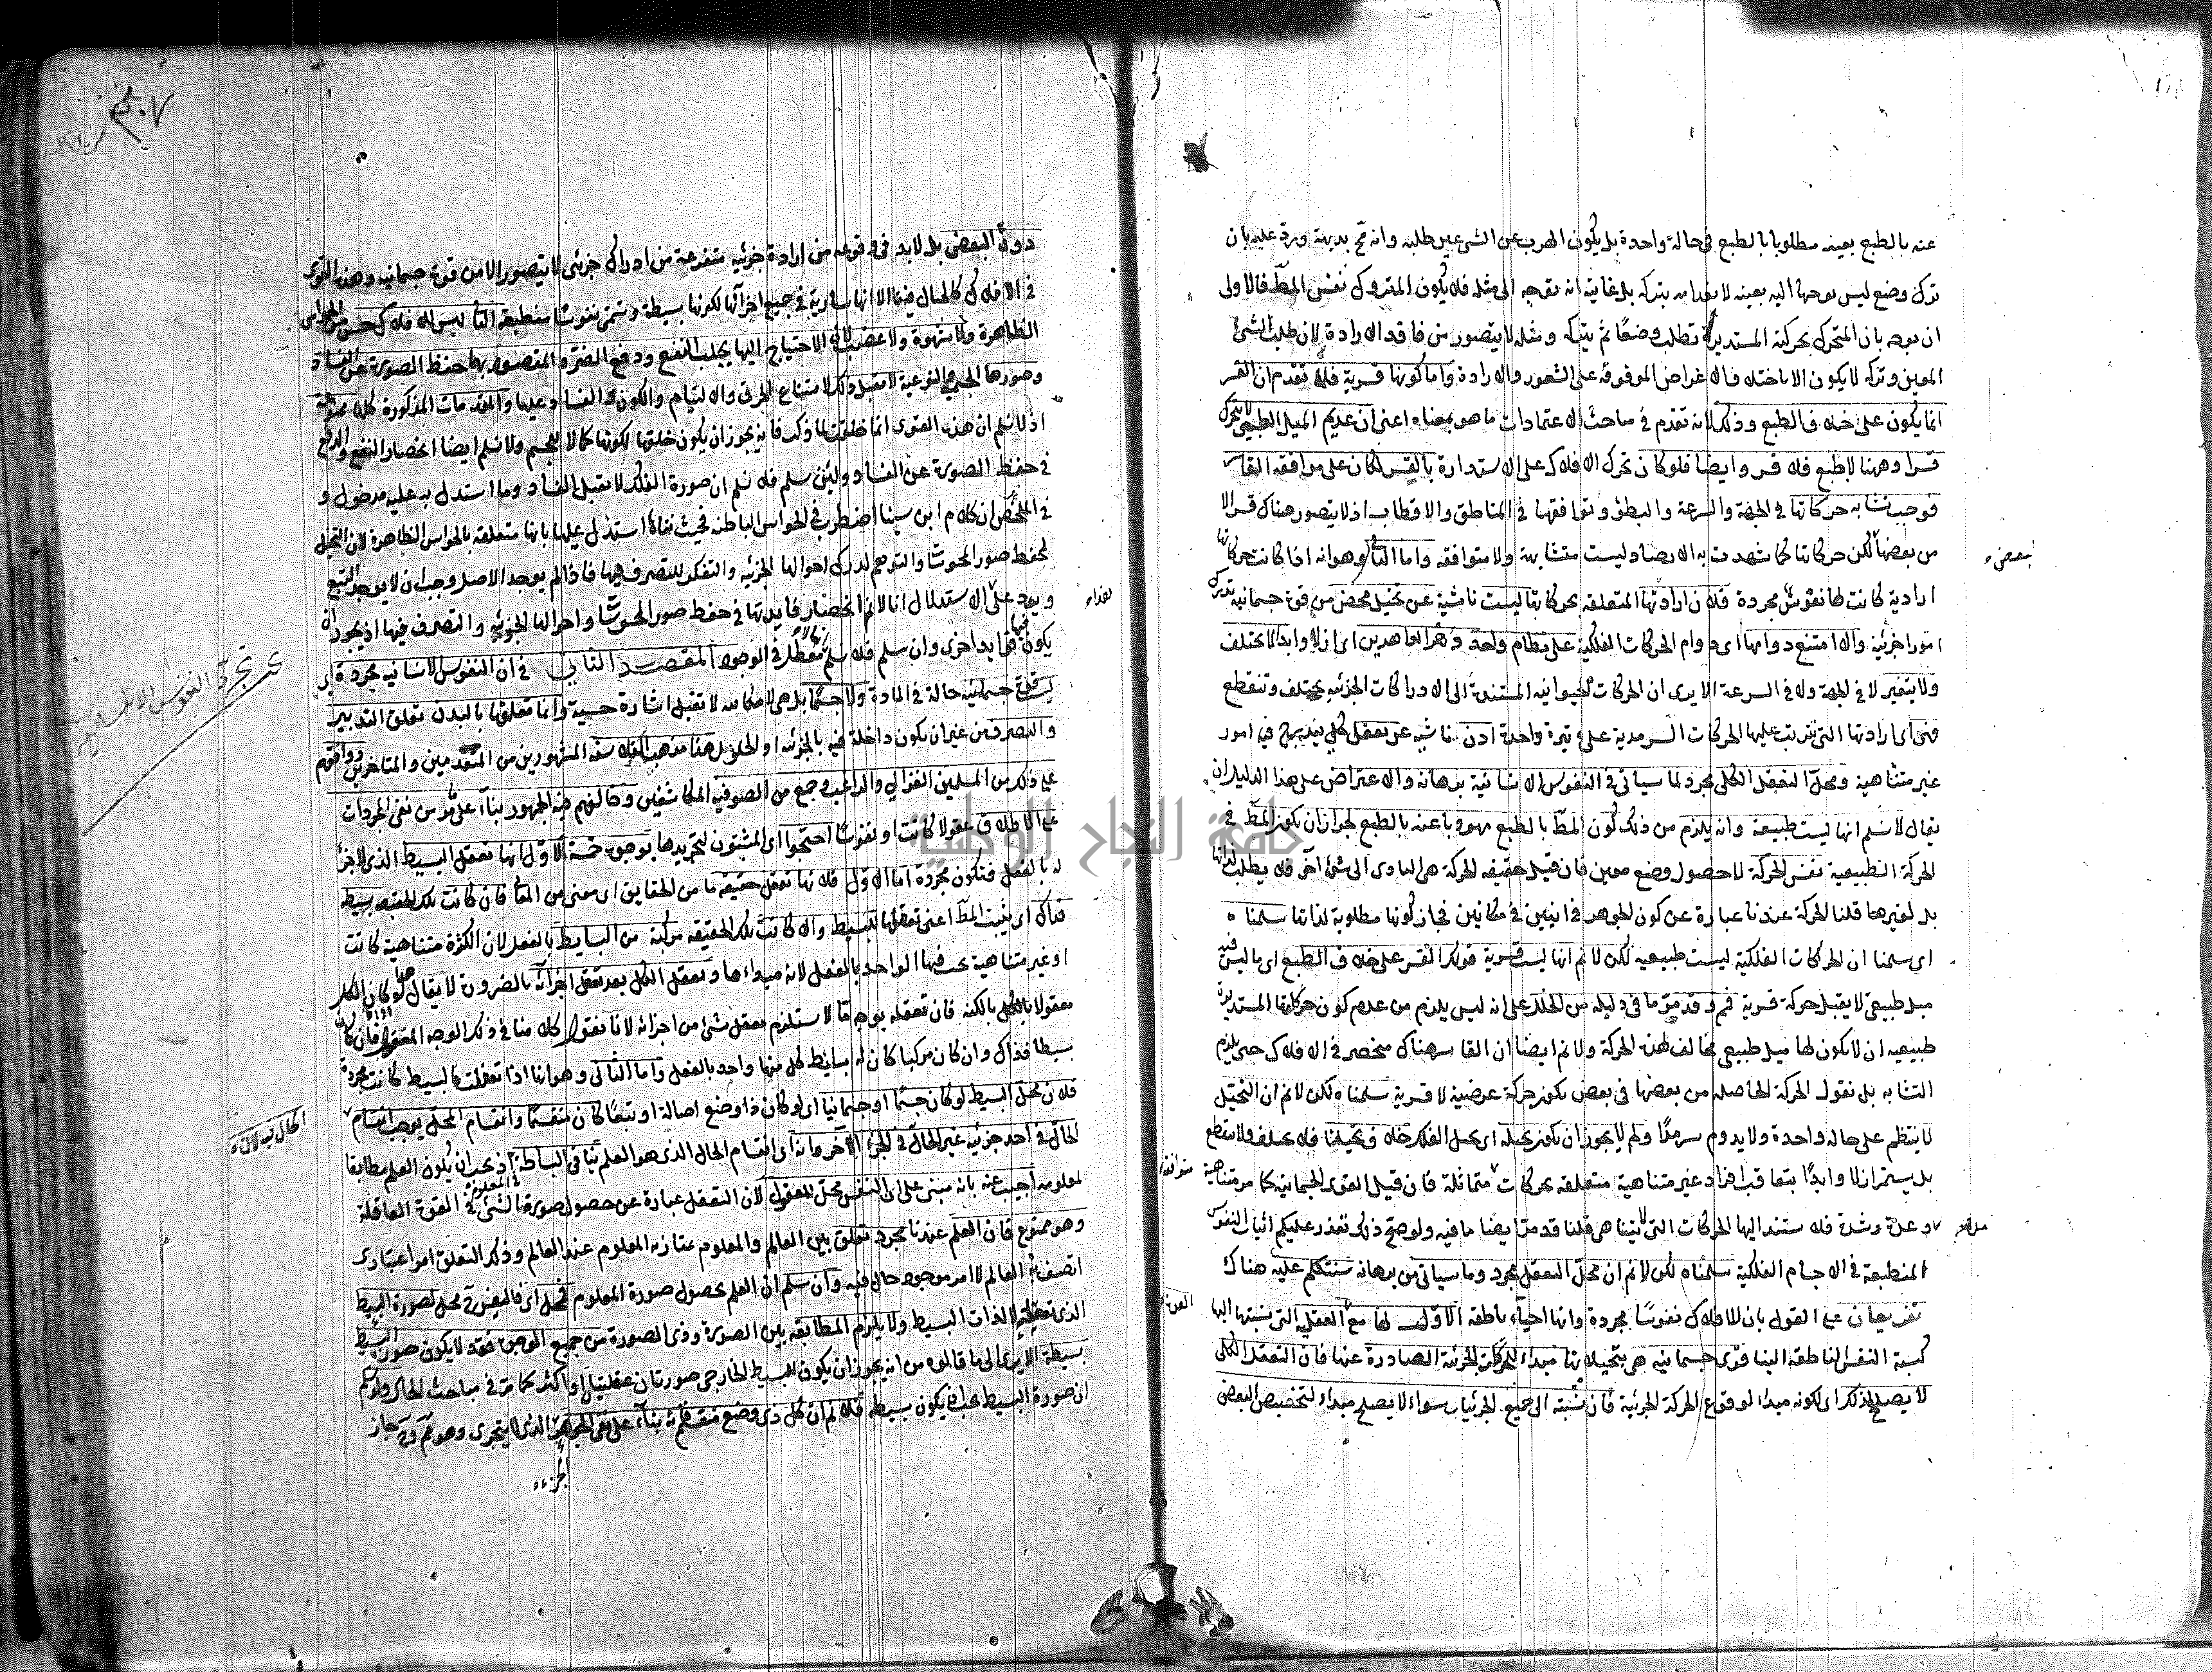 عنه بالطبع بعينه مطلوبا بالطبع في حالة واحدة بل يكون الهرب عن الشئ عين طلبه وانه مح بديهة ورد عليه بان
ترك وضع ليس توجها اليه بعينه لانعدامه بتركه بل غايته انه توجه الى مثله فلا يكون المتروك نفس المط فالاولى
ان يوجه بان المتحرك بحركته المستديرة تطلب وضعا ثم يتركه ومثله لا يتصور من فاقد الارادة لان طلب الشئ
المعين وتركه لا يكون الا باختلاف الاغراض الموقوفة على الشعور والارادة واما كونها قسرية فلما تقدم ان القسر
انما يكون على خلاف الطبع وذلك لانه تقدم في مباحث الاعتمادات ما هو بمعناه اعنى ان عديم الميل الطبيعي لا يتحرك
قسرا وههنا لا طبع فلا قسر وايضا فلو كان تحرك الافلاك على الاستدارة بالقسر لكان على موافقة القاسر
فوجب تشابه حركاتها في الجهة والسرعة والبطؤ وتوافقها في المناطق والاقطاب اذ لا يتصور هناك قسر الا
من بعضها لكن حركاتها كما شهدت به الارصاد ليست متشابهة ولا متوافقة واما الثا وهو انه اذا كانت حركاتها
ارادية كانت لها نفوس مجردة فلان ارادتها المتعلقة بحركاتها ليست ناشية عن تخيل محض من قوة جسمانية تدرك
امورا جزئية والا امتنع دوامها اى دوام الحركات الفلكية على نظام واحد دهر الداهدين اى ازلا وابدا لا يختلف
ولا يتغير لا في الجهة ولا في السرعة الا يرى ان الحركات الحيوانية المستندة الى الادراكات الجزئية يختلف وتنقطع
فهى اى ارادتها التى يترتب عليها الحركات السرمدية على وتيرة واحدة اذن ناشية عن تعقل كلي يندرج فيه امور
غير متناهية ومحل التعقل الكلى مجرد لما سياتى في النفوس الانسانية برهانه والاعتراض على هذا الدليل ان
يقال لا نسلم انها ليست طبيعة وانه يلزم من ذلك كون المط بالطبع مهروبا عنه بالطبع لجواز ان يكون المط في
الحركة الطبيعية نفس الحركة لا حصول وضع معين فان قيل حقيقة الحركة هى التادى الى شئ آخر فلا يطلب لذاتها
بل لغيرها قلنا الحركة عندنا عبارة عن كون الجوهر في آنيين في مكانين فجاز كونها مطلوبة لذاتها سلمناه
اى سلمنا ان الحركات الفلكية ليست طبيعية لكن لا نم انها ليست قسرية قولك القسر على خلاف الطبع اى ما ليس فيه
ميل طبيعي لا يقبل حركة قسرية قم وقد مر ما في دليله من الخلل على انه ليس يلزم من عدم كون حركاتها المستديرة
طبيعية ان لا تكون لها ميل طبيعى مخالف لهذه الحركة ولا نم ايضا ان القاسر هناك منحصر في الافلاك حتى يلزم
التشابه بل نقول الحركة الحاصلة من بعضها في بعض تكون حركة عرضية لا قسرية سلمناه لكن لا نم ان التخيل
لا ينتظم على حالة واحدة ولا يدوم سرمدا ولم لا يجوز ان يكون تخيله اى تخيل الفلك خلاف تخيلنا فلا يختلف ولا ينقطع
بل يستمر ازلا وابدا بتعاقب افراد غير متناهية متعلقة بحركات متماثلة فان قيل القوى الجسمانية كما مر متناهية
وعدة وشدة فلا ستند اليها الحركات التى لا يتناهى قلنا قد مر ايضا ما فيه ولو صح ذلك تعذر عليكم اثبات النفوس
المنطبعة في الاجسام الفلكية سلمناه لكن لا نم ان محل التعقل مجرد وما سياتى من برهانه سنتكلم عليه هناك
تفريعان على القول بان للافلاك نفوسا مجردة وانها احياء ناطقة الاول لها مع العقلية التى نسبتها اليها
كنسبة النفس الناطقة الينا قوى جسمانية هى بتخيلاتها مبداء للحركات الجزئية الصادرة عنها فان التعقل الكلى
لا يصلح لذلك اى لكونه مبداء لوقوع الحركة الجزئية فان نسبته الى جميع الجزئيات سواء لا يصلح مبداء لتخصيص البعض
بعضى
دون البعض بل لابد في وقوعه من ارادة جزئية متفرعة من ادراك جزئى لا يتصور الا من قوة جسمانية وهذه القوى
في الافلاك كالخيال فينا الا انها سارية في جميع اجزائها لكونها بسيطة وتسمى نفوسا منطبعة الثا ليس للافلاك حس من الحواس
الظاهرة ولا شهوة ولا غضب لان الاحتياج اليها لجلب النفع ودفع الضر والمقصود بها حفظ الصورة عن الفساد
وصورها الجسمية والنوعية لا تقبل ذلك لامتناع الخرق والالتيام والكون والفساد عليها والمقدمات المذكورة كلها ممنوعة
اذ لا نسلم ان هذه القوى انما خلقت لما ذكر فانه يجوز ان يكون خلقها لكونها كمالا للجسم ولا نسلم ايضا انحصار النفع والدفع
في حفظ الصورة عن الفساد ولئن سلم فلا نسلم ان صورة الفلك لا تقبل الفساد وما استدل به عليه مدخول و
في الملخص ان كلام ابن سينا اضطرب في الحواس الباطنة فحيث نفاها استدل عليها بانها متعلقة بالحواس الظاهرة لان التخيل
لحفظ صور المحسوسات والتوهم لدرك احوالها الجزئية والتفكر للتصرف فيها فاذا لم يوجد الاصل وجب ان لا يوجد التبع
ويرد على الاستدلال انا لا نم انحصار فايدتها في حفظ صور المحسوسات واحوالها الجزئية والتصرف فيها اذ يجوز ان
يكون فيها فايدة اخرى وان سلم فلا نسلم انها لا تعطل في الوجود المقصد الثاني في ان النفوس الانسانية مجردة اى
ليست قوة جسمانية حالة في المادة ولا جسما بل هى لا مكانية لا تقبل اشارة حسية وانما تعلقها بالبدن تعلق التدبير
والتصرف من غير ان يكون داخلة فيه بالجزئية او الحلول هذا مذهب الفلاسفة المشهورين من المتقدمين والمتاخرين ووافقهم
على ذلك من المسلمين الغزالي والراغب وجمع من الصوفية المكاشفين وخالفهم فيه الجمهور بناء على ما مر من نفى المجردات
على الاطلاق عقولا كانت او نفوسا احتجوا اى المثبتون لتجريدها بوجوه خمسة الاول انها تعقل البسيط الذى لا جزء
له بالفعل فتكون مجردة اما الاول فلانها تعقل حقيقة ما من الحقايق اى معنى من المعا فان كانت تلك الحقيقة بسيطة
فذاك اى يثبت المط اعنى تعقلها للبسيط والا كانت تلك الحقيقة مركبة من البسايط بالفعل لان الكثرة متناهية كانت
او غير متناهية يجب فيها الواحد بالفعل لانه مبداءها وتعقل الكل بعد تعقل اجزائه بالضرورة لا يقال هذا لو كان الكل
معقولا بالكنه فان تعقله بوجه ما لا يستلزم تعقل شئ من اجزائه لانا نقول كلامنا في ذلك الوجه المعقول فان كان
بسيطا فذاك وان كان مركبا كان له بسايط كل منها واحد بالفعل واما الثانى وهو انها اذا تعقلت البسيط كانت مجردة
فلان محل البسيط لو كان جسما او جسمانيا اى لو كان ذا وضع اصالة او تبعا كان منقسما وانقسام المحل يوجب انقسام
الحال في احد جزئيه غير الحال في الجزء الآخر وانه اى انقسام الحال الذى هو العلم ينافى البساطة اذ يجب ان يكون العلم مطابقا
لمعلومه اجيب عنه بانه مبنى على ان النفس محل للمعقول لان التعقل عبارة عن حصول صورة الشئ في القوة العاقلة
وهو ممنوع فان العلم عندنا مجرد تعلق بين العالم والمعلوم يمتاز به المعلوم عند العالم وذلك التعلق امر اعتبارى
اتصف به العالم لا امر موجود حال فيه وان سلم ان العلم بحصول صورة المعلوم فمحل اى فالنفس محل لصورة البسيط
الذى تعقلته لا لذات البسيط ولا يلزم المطابقة بين الصورة وذى الصورة من جميع الوجوه فقد لا يكون صورة البسيط
بسيطة الا يرى الى ما قالوه من انه يجوز ان يكون للبسيط الخارجى صورتان عقليتان او اكثر كما مر في مباحث
ان صورة البسيط يجب ان يكون بسيطة فلا نم ان كل ذى وضع منقسم بناء على نفى الجوهر الذى لا يتجزى وهو مم جاز
تجرد النفوس الانسانية
الجزء